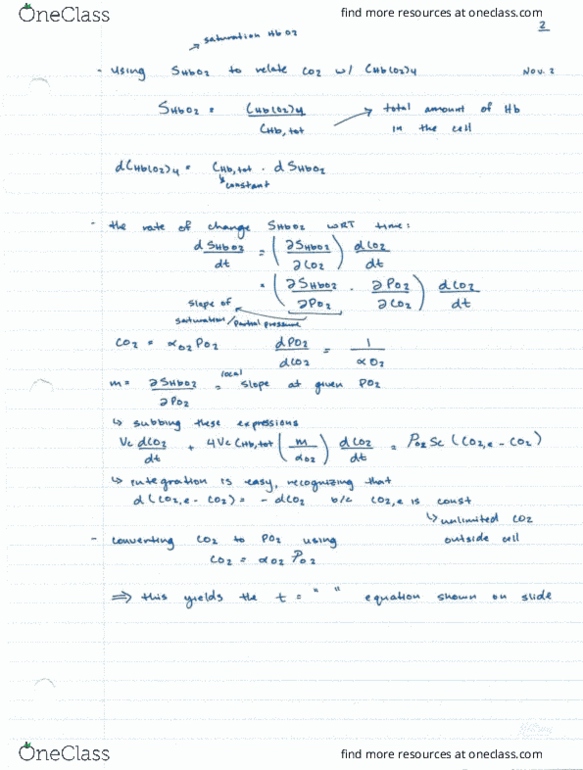 OneClass
find more resources at oneclass.com
2
saturation HbO2
- using SHbO2 to relate CO2 w/ CHb(O2)4
Nov. 2
SHbO2 = CHb(O2)4 / CHb,tot → total amount of Hb in the cell
dCHb(O2)4 = CHb,tot · dSHbO2
constant
- the rate of change SHbO2 WRT time:
dSHbO2/dt = (∂SHbO2/∂CO2) dCO2/dt
= (∂SHbO2/∂PO2 · ∂PO2/∂CO2) dCO2/dt
slope of
saturation/partial pressure
CO2 = αO2 PO2 dPO2/dCO2 = 1/αO2
m = ∂SHbO2/∂PO2 = local slope at given PO2
↳ subbing these expressions
Vc dCO2/dt + 4Vc CHb,tot (m/αO2) dCO2/dt = PO2 Sc (CO2,e - CO2)
↳ integration is easy, recognizing that
d(CO2,e - CO2) = - dCO2 b/c CO2,e is const
↳ unlimited CO2
outside cell
- converting CO2 to PO2 using
CO2 = αO2 PO2
⇒ this yields the t = " " equation shown on slide
OneClass
find more resources at oneclass.com